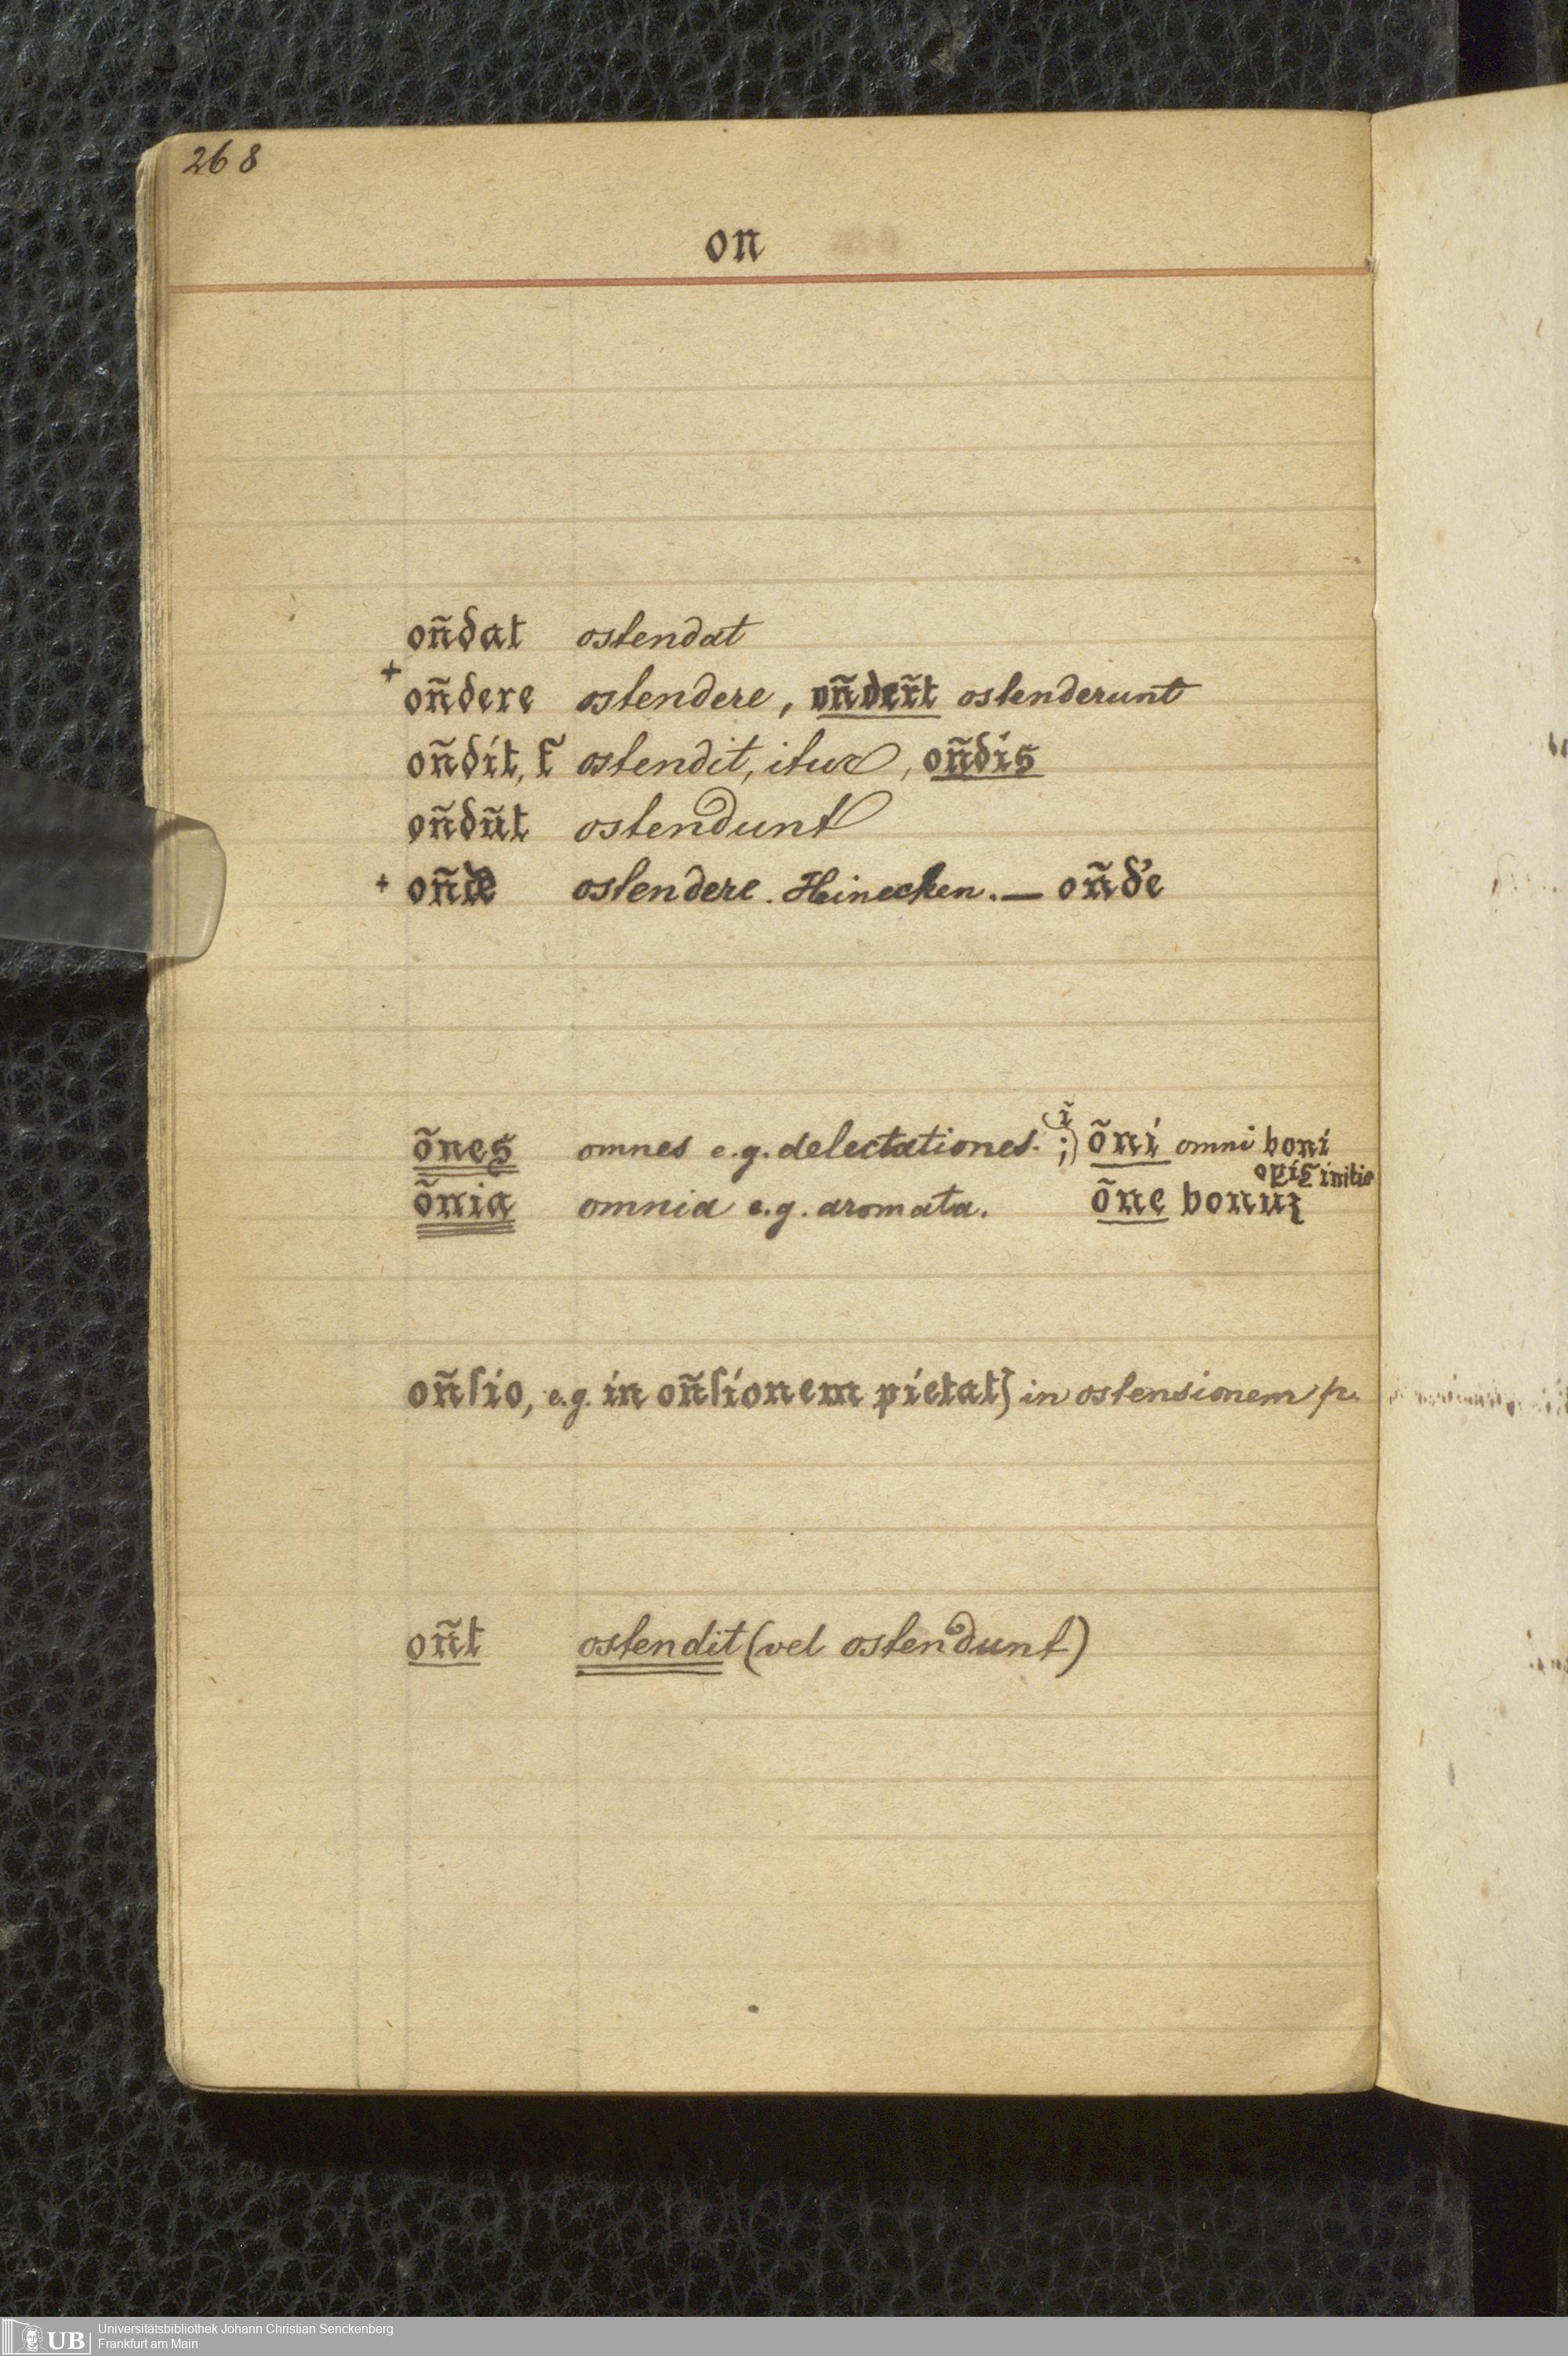 268
on
oñdat ostendat
+ oñdere ostendere, oñdeñt ostenderunt
oñdit, t̃ ostendit, itur, oñdis
oñdũt ostendunt
+ oñde ostendere. Heinecken. — oñd'e
õnes omnes e.g. delectationes. ; õni omni boni
opis initio
õnia omnia e.g. aromata. õne bonuʒ
oñſio, e.g. in oñſionem pietat in ostensionem p.
oñt ostendit (vel ostendunt)
UB Universitätsbibliothek Johann Christian Senckenberg
Frankfurt am Main